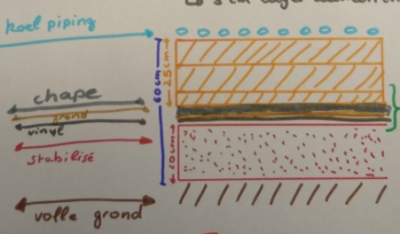 koel piping
60 cm
25 cm
chape
grond
vinyl
stabilisé
20 cm
volle grond